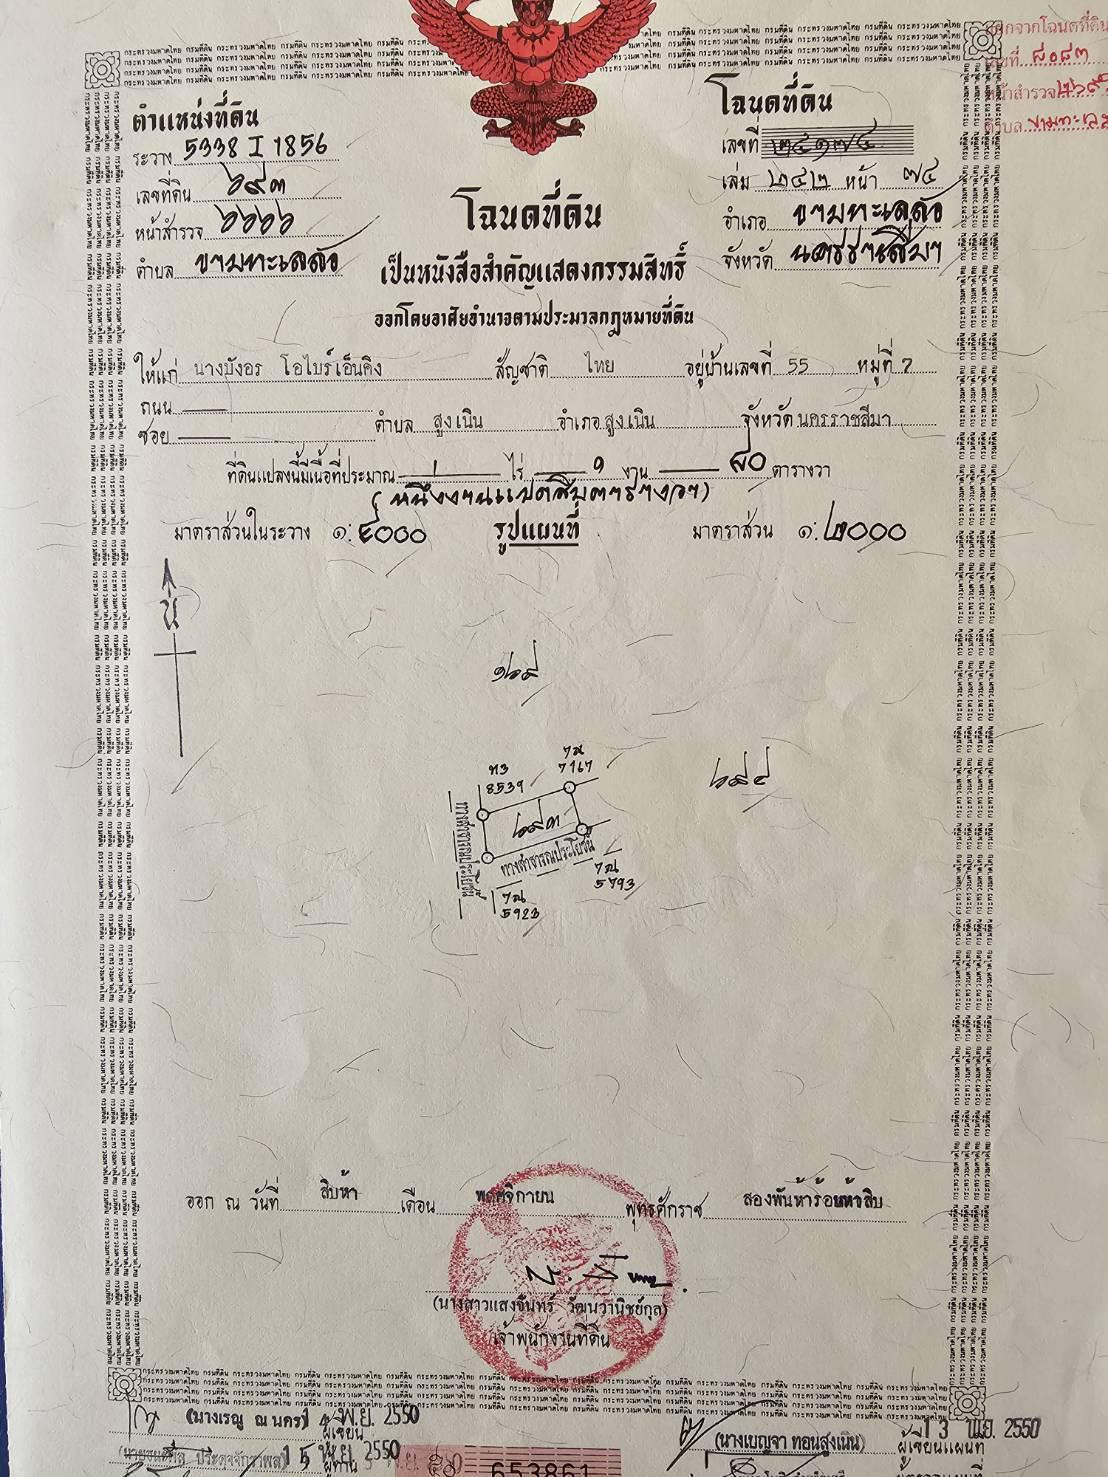 ออกจากโฉนดที่ดิน
เลขที่ ๘๐๘๓
หน้าสำรวจ ๒๖๙๕
ตำบล ขามทะเลสอ
ตำแหน่งที่ดิน
ระวาง 5338 I 1856
เลขที่ดิน ๖๙๓
หน้าสำรวจ ๖๖๖๖
ตำบล ขามทะเลสอ
โฉนดที่ดิน
เลขที่ ๒๔๑๗๔
เล่ม ๒๔๒ หน้า ๗๔
อำเภอ ขามทะเลสอ
จังหวัด นครราชสีมา
โฉนดที่ดิน
เป็นหนังสือสำคัญแสดงกรรมสิทธิ์
ออกโดยอาศัยอำนาจตามประมวลกฎหมายที่ดิน
ให้แก่ นางบังอร โอไบร์เอ็นคิง สัญชาติ ไทย อยู่บ้านเลขที่ 55 หมู่ที่ 7
ถนน
ซอย ตำบล สูงเนิน อำเภอ สูงเนิน จังหวัด นครราชสีมา
ที่ดินแปลงนี้มีเนื้อที่ประมาณ - ไร่ ๑ งาน ๘๐ ตารางวา
(หนึ่งงานแปดสิบตารางวา)
มาตราส่วนในระวาง ๑:๔๐๐๐ รูปแผนที่ มาตราส่วน ๑:๒๐๐๐
น
๑๖๘
๖๙๔
ท3
8539
7ส
7167
๖๙๓
ทางสาธารณประโยชน์
ทางสาธารณประโยชน์
7ณ
5793
7ณ
5923
ออก ณ วันที่ สิบห้า เดือน พฤศจิกายน พุทธศักราช สองพันห้าร้อยห้าสิบ
(นางสาวแสงจันทร์ วัฒนวานิชย์กุล)
เจ้าพนักงานที่ดิน
(นางเรณู ณ นคร) พ.ย. 2550
ผู้เขียน
15 พ.ย. 2550
ผู้ทาน
13 พ.ย. 2550
(นางเบญจา ทอนสูงเนิน) ผู้เขียนแผนที่
653861